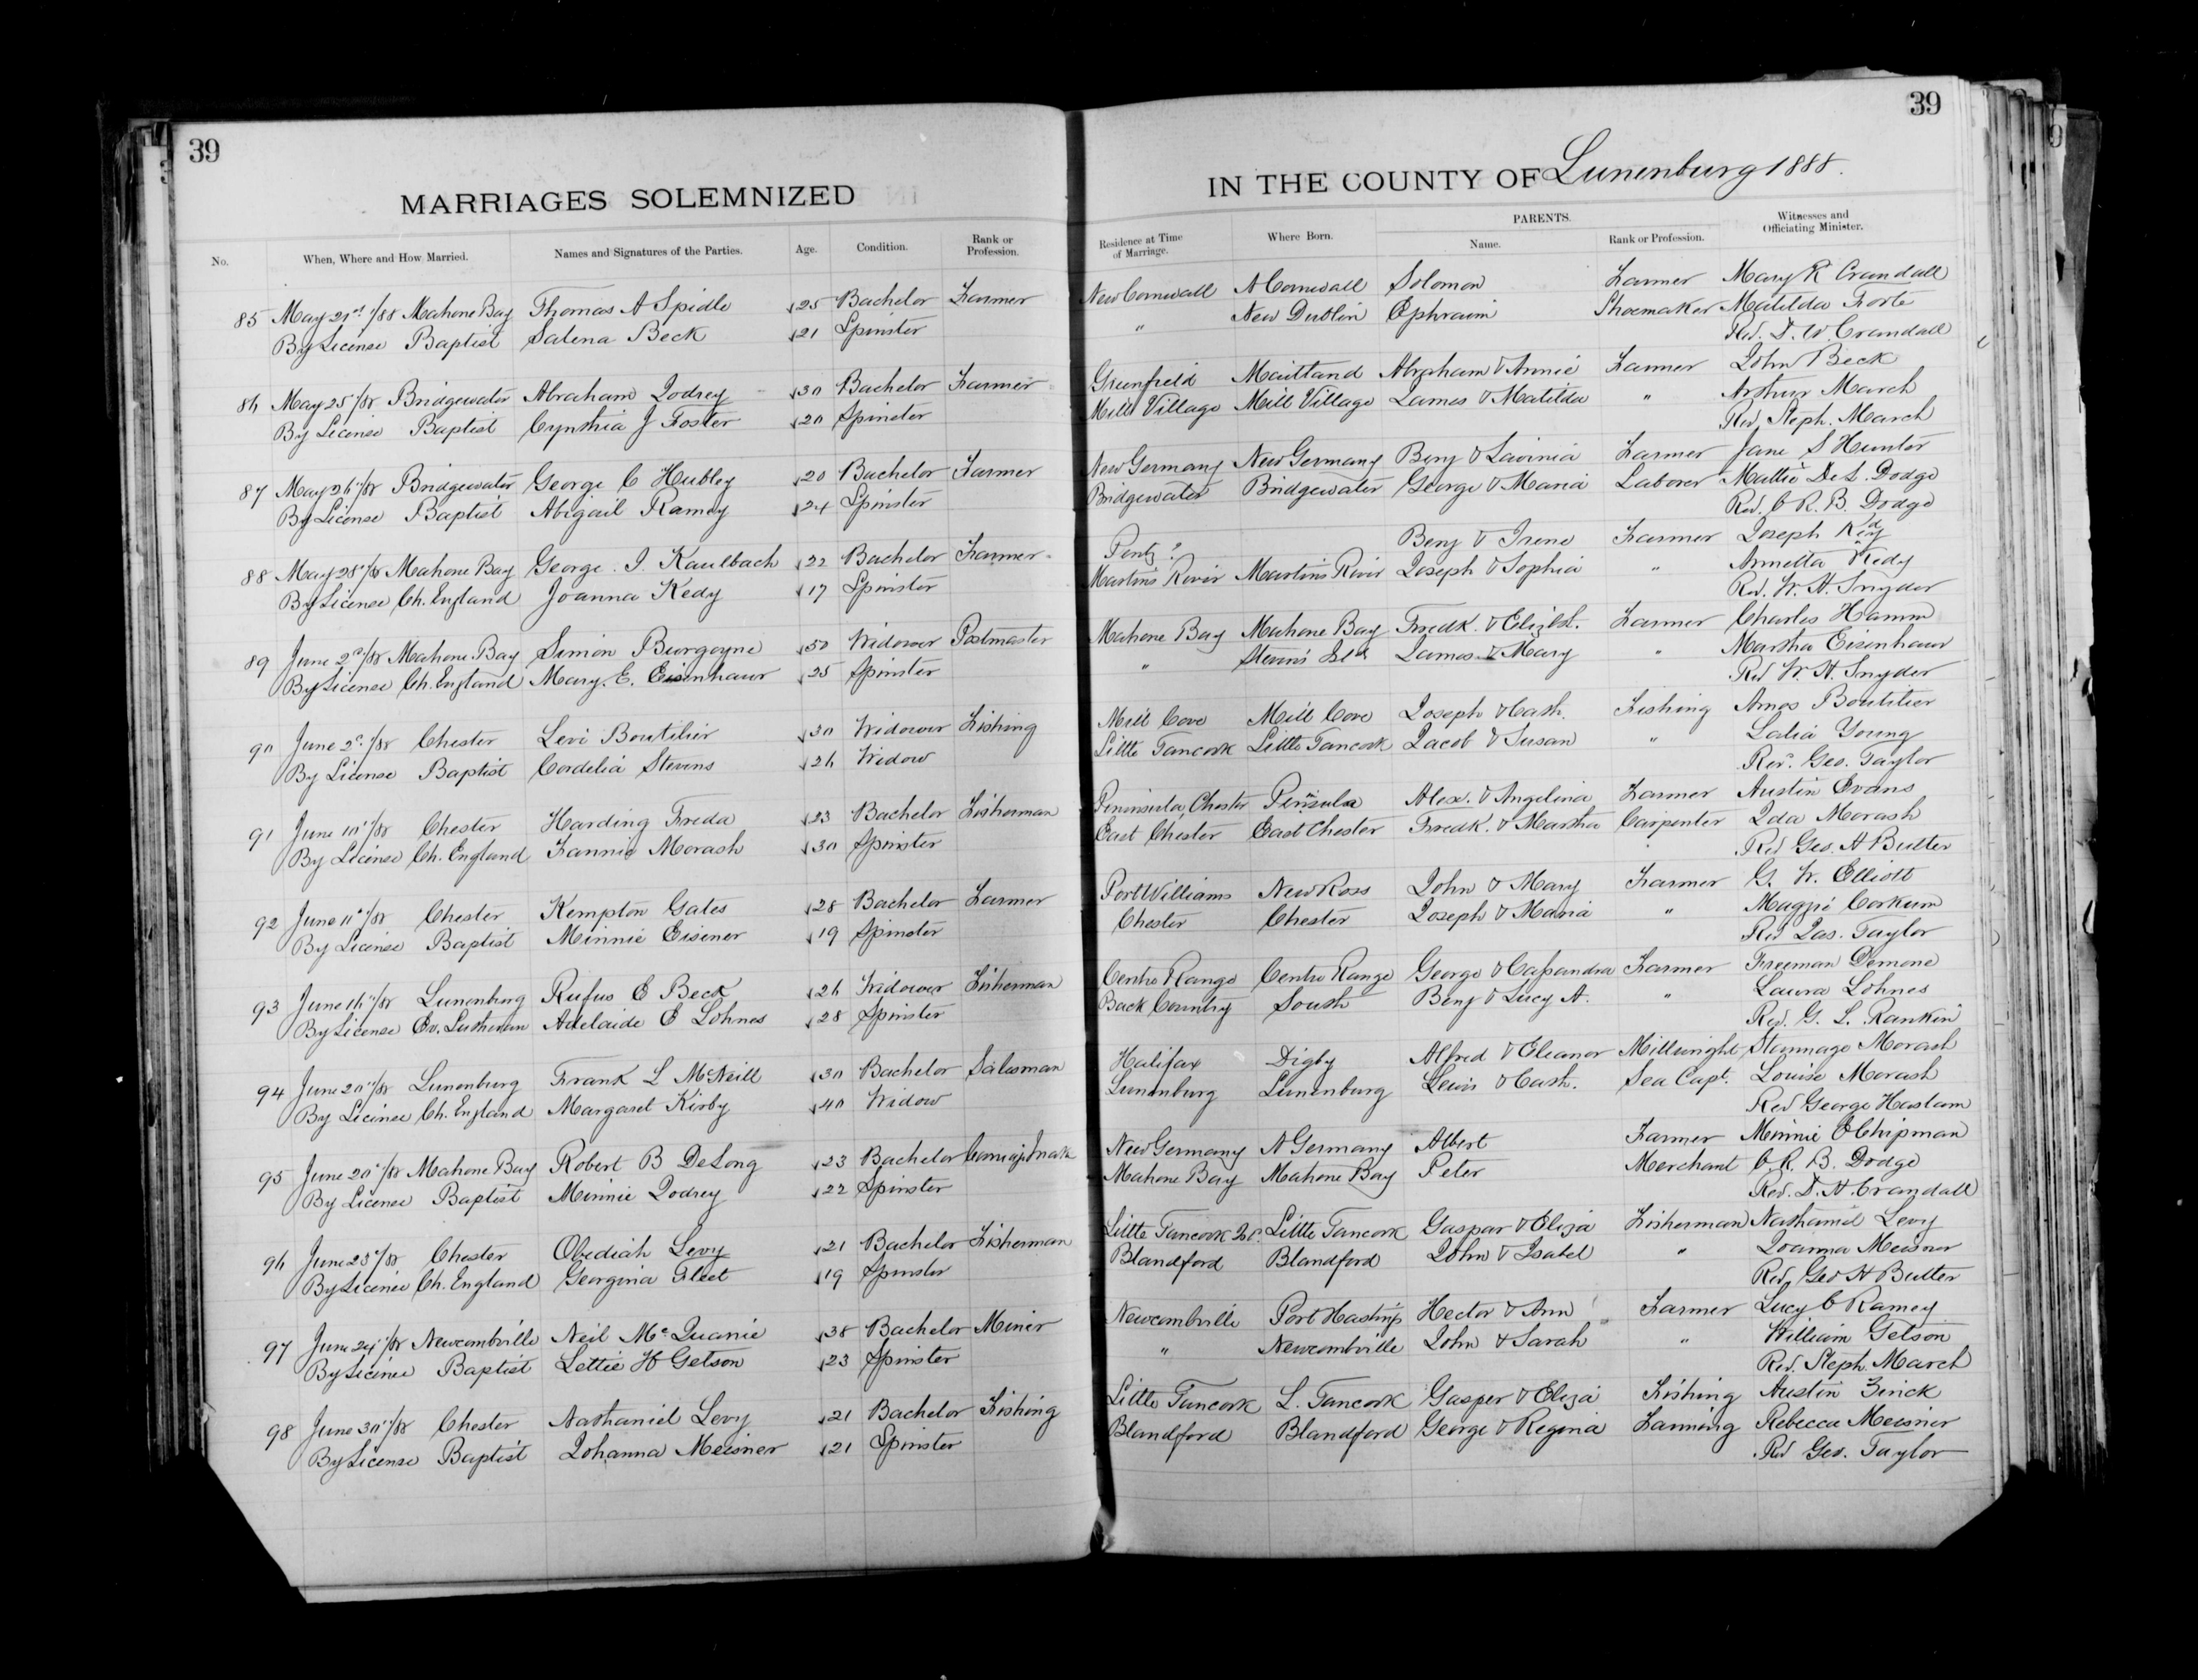 39
39
MARRIAGES SOLEMNIZED
IN THE COUNTY OF Lunenburg 1888.
No. When, Where and How Married. Names and Signatures of the Parties. Age. Condition. Rank or Profession. Residence at Time of Marriage. Where Born. PARENTS. Name. Rank or Profession. Witnesses and Officiating Minister.
85 May 21st/88 Mahone Bay Thomas A Spidle 25 Bachelor Farmer New Cornwall N Cornwall Solomon Farmer Mary R Crandall
By License Baptist Salena Beck 21 Spinster " New Dublin Ephraim Shoemaker Matilda Forte
Rev. D. W. Crandall
86 May 25/88 Bridgewater Abraham Zodrey 30 Bachelor Farmer Greenfield Maitland Abraham & Annie Farmer John Beck
By License Baptist Cynthia J Foster 20 Spinster Mill Village Mill Village James & Matilda " Arthur March
Rev. Steph. March
87 May 26/88 Bridgewater George C Hubley 20 Bachelor Farmer New Germany New Germany Benj & Lavinia Farmer Jane S Hunter
By License Baptist Abigail Ramey 24 Spinster Bridgewater Bridgewater George & Maria Laborer Mattie De L. Dodge
Rev. C. R. B. Dodge
88 May 28/88 Mahone Bay George I. Kaulbach 22 Bachelor Farmer Pentz? Benj & Irene Farmer Joseph Kedy
By License Ch. England Joanna Kedy 17 Spinster Martins River Martins River Joseph & Sophia " Armetta Kedy
Rev. W. H. Snyder
89 June 2d/88 Mahone Bay Simon Burgoyne 50 Widower Postmaster Mahone Bay Mahone Bay Fredk. & Elizbt. Farmer Charles Hamm
By License Ch. England Mary. E. Eisenhaur 25 Spinster " Stevens Isld James & Mary " Martha Eisenhaur
Rev W. H. Snyder
90 June 2d/88 Chester Levi Boutilier 30 Widower Fishing Mill Cove Mill Cove Joseph & Cath. Fishing Amos Boutilier
By License Baptist Cordelia Stevens 26 Widow Little Tancook Little Tancook Jacob & Susan " Salia Young
Rev. Geo. Taylor
91 June 10/88 Chester Harding Freda 23 Bachelor Fisherman Peninsula, Chester Peninsula Alex. & Angelina Farmer Austin Evans
By License Ch. England Fannie Morash 30 Spinster East Chester East Chester Fredk. & Martha Carpenter Ida Morash
Rev Geo. H Butler
92 June 11/88 Chester Kempton Gates 28 Bachelor Farmer Port Williams New Ross John & Mary Farmer G. W. Elliott
By License Baptist Minnie Eisener 19 Spinster Chester Chester Joseph & Maria " Maggie Corkum
Rev Jas. Taylor
93 June 16/88 Lunenburg Rufus E Beck 26 Widower Fisherman Centre Range Centre Range George & Cassandra Farmer Freeman Demone
By License Ev. Lutheran Adelaide E Lohnes 28 Spinster Back Country South Benj & Lucy A. " Laura Lohnes
Rev. G. L. Rankin
94 June 20/88 Lunenburg Frank L McNeill 30 Bachelor Salesman Halifax Digby Alfred & Eleanor Millwright Stannage Morash
By License Ch. England Margaret Kirby 40 Widow Lunenburg Lunenburg Lewis & Cath. Sea Capt. Louise Morash
Rev George Haslam
95 June 20/88 Mahone Bay Robert B DeLong 23 Bachelor New Germany N Germany Albert Farmer Minnie E Chipman
By License Baptist Minnie Zodrey 22 Spinster Mahone Bay Mahone Bay Peter Merchant C. R. B. Dodge
Rev. D. W. Crandall
96 June 23/88 Chester Obediah Levy 21 Bachelor Fisherman Little Tancook Isl. Little Tancook Gaspar & Eliza Fisherman Nathaniel Levy
By License Ch. England Georgina Fleet 19 Spinster Blandford Blandford John & Isabel " Joanna Meisner
Rev. Geo H Butler
97 June 24/88 Newcombville Neil McQuarrie 38 Bachelor Miner Newcombville Port Hastings Hector & Ann Farmer Lucy C Ramey
By License Baptist Lettie H Getson 23 Spinster " Newcombville John & Sarah " William Getson
Rev. Steph. March
98 June 30/88 Chester Nathaniel Levy 21 Bachelor Fishing Little Tancook L. Tancook Gasper & Eliza Fishing Austin Zinck
By License Baptist Johanna Meisner 21 Spinster Blandford Blandford George & Regina Farming Rebecca Meisner
Rev Geo. Taylor